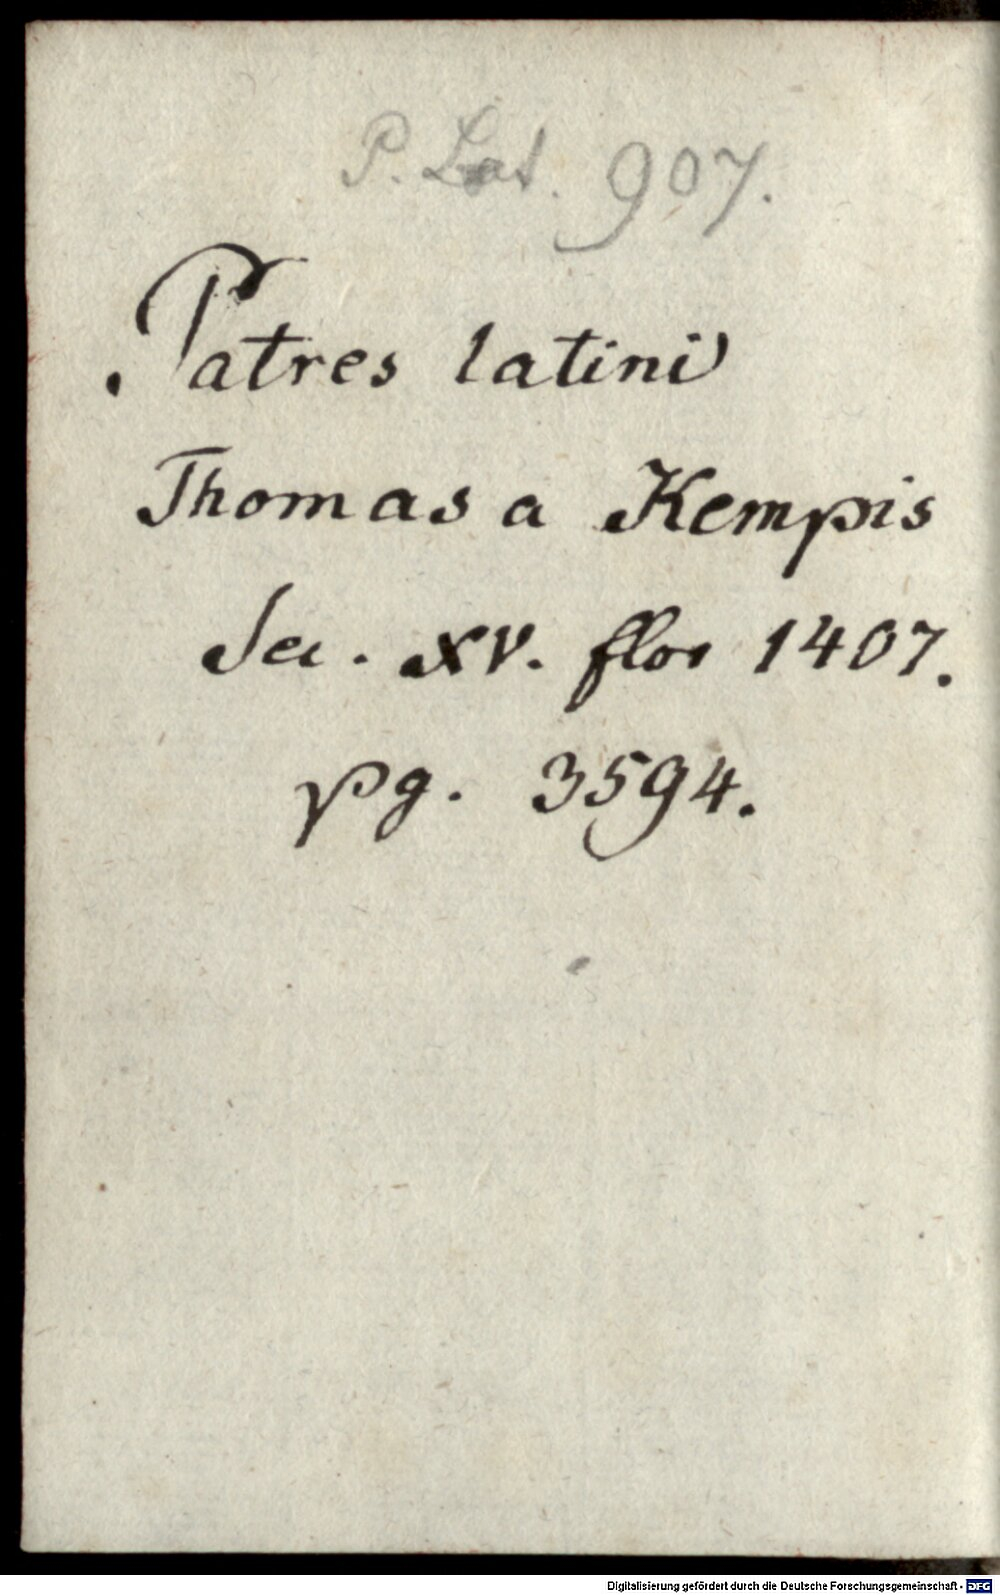 P. Lat. 907.
Patres latini
Thomas a Kempis
Sec. XV. flor 1407.
pg. 3594.
Digitalisierung gefördert durch die Deutsche Forschungsgemeinschaft - DFG